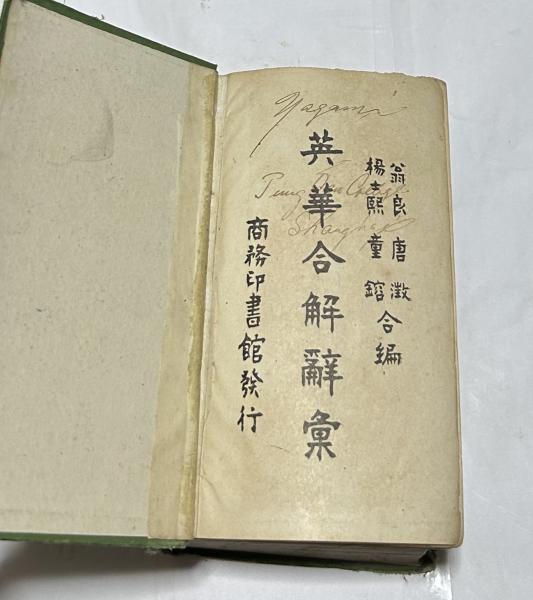 Yagami
翁良 唐澂
楊士熙 童鎔
合編
英華合解辭彙
商務印書館發行
Shanghai